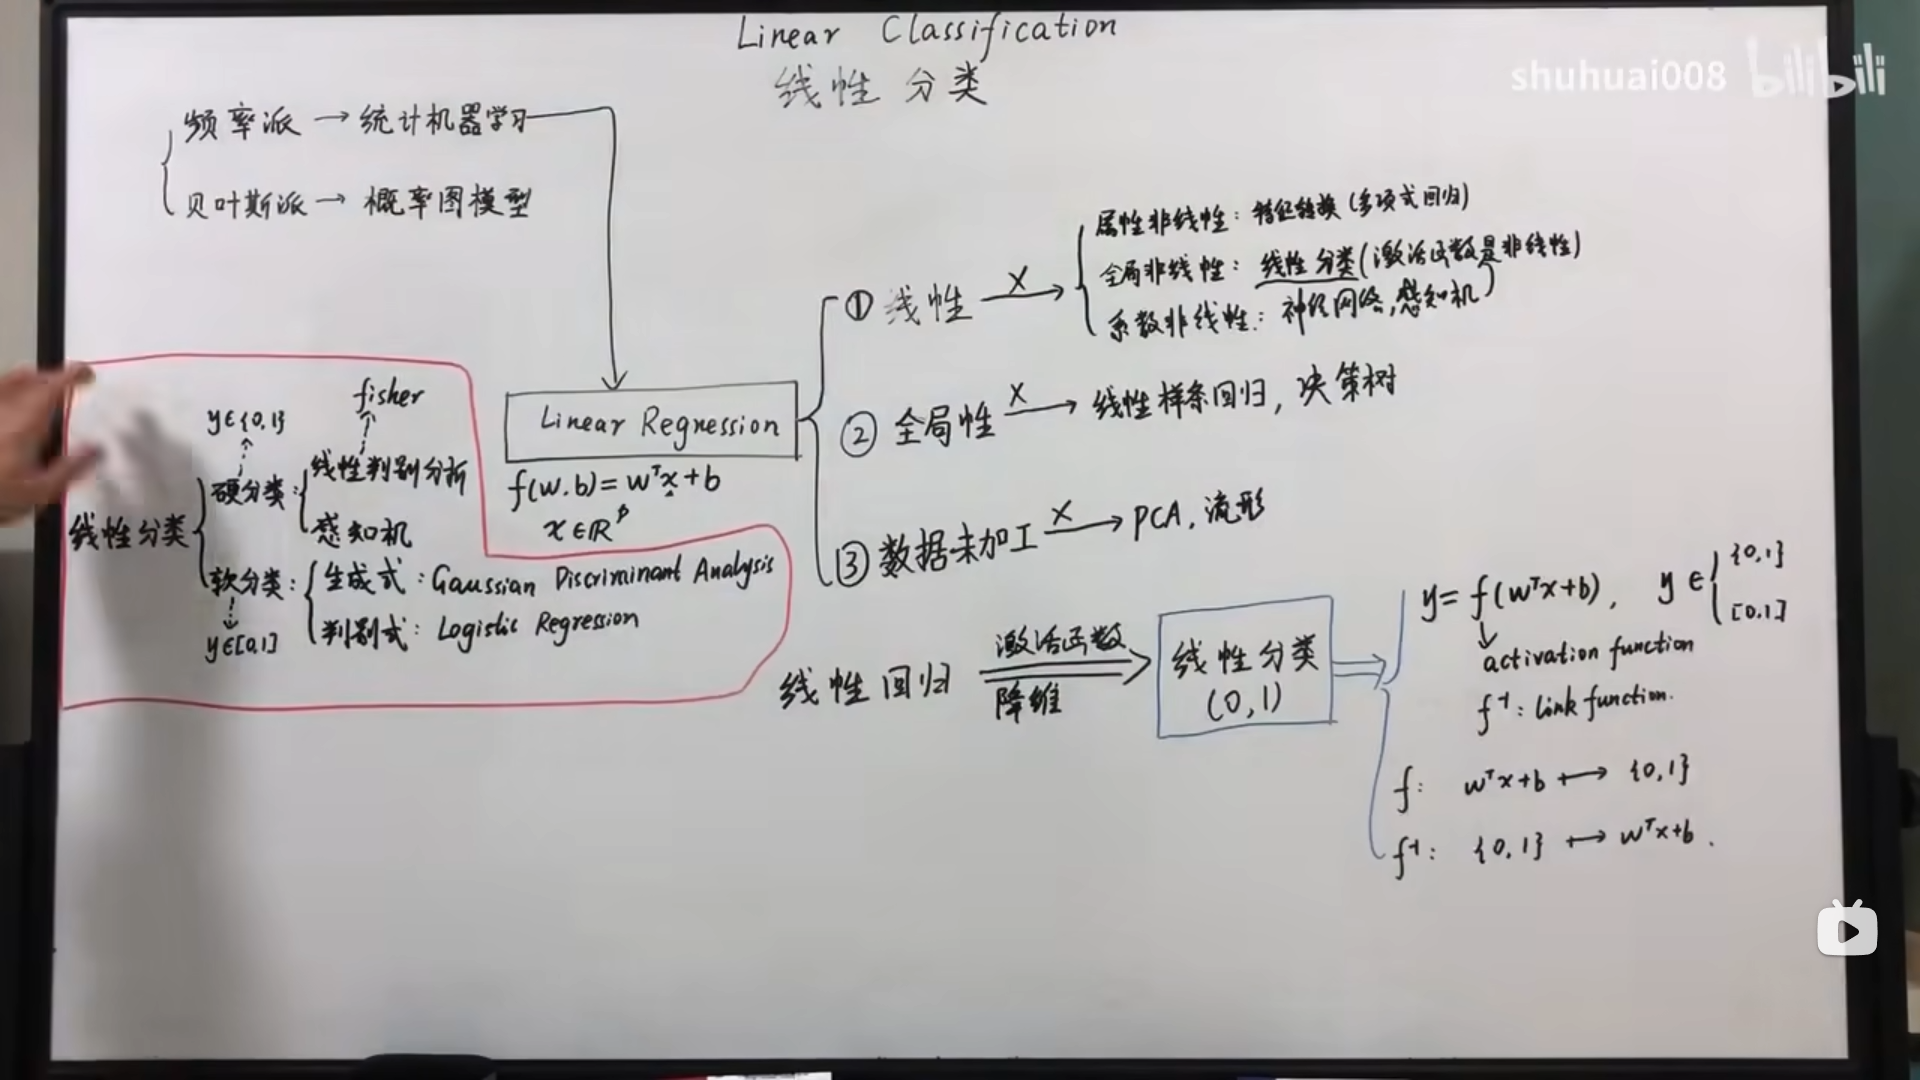 Linear Classification
线性分类
shuhuai008 bilibili
频率派 → 统计机器学习
贝叶斯派 → 概率图模型
Linear Regression
f(w.b)=wᵀx+b
x∈ℝᵖ
① 线性 X→
属性非线性：特征转换(多项式回归)
全局非线性：线性分类(激活函数是非线性)
系数非线性：神经网络,感知机
② 全局性 X→ 线性样条回归，决策树
③ 数据未加工 X→ PCA，流形
线性分类
y∈{0,1}
硬分类：
fisher
线性判别分析
感知机
软分类：
y∈[0,1]
生成式：Gaussian Discriminant Analysis
判别式：Logistic Regression
线性回归
激活函数
降维
线性分类
(0,1)
y=f(wᵀx+b), y∈ {0,1}
[0,1]
activation function
f⁻¹: link function.
f: wᵀx+b ↦ {0,1}
f⁻¹: {0,1} ↦ wᵀx+b.